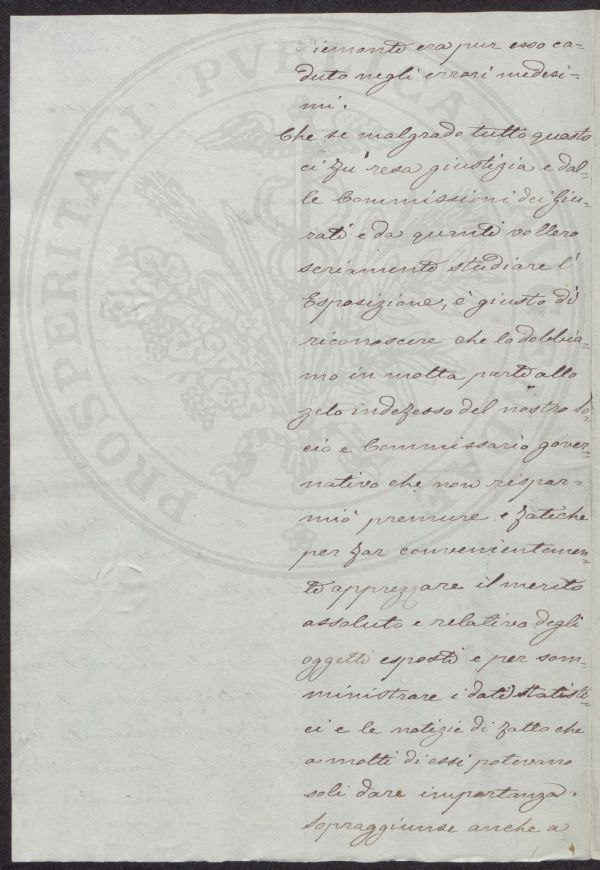 Piemonte era pur esso ca=
duto negli errori medesi=
mi.
Che se malgrado tutto questo
ci fu' resa giustizia e dal=
le Commissioni dei Giu=
rati e da quanti vollero
seriamente studiare l'
Esposizione, è giusto di
riconoscere che lo dobbia=
mo in molta parte allo
zelo indefesso del nostro So=
cio e Commissario gover=
nativo che non rispar=
miò premure e fatiche
per far convenientemen=
te apprezzare il merito
assoluto e relativo degli
oggetti esposti e per som=
ministrare i dati statisti=
ci e le notizie di fatto che
a molti di essi potevano
soli dare importanza.
Sopraggiunse anche a
PROSPERITATI PVBLICAE